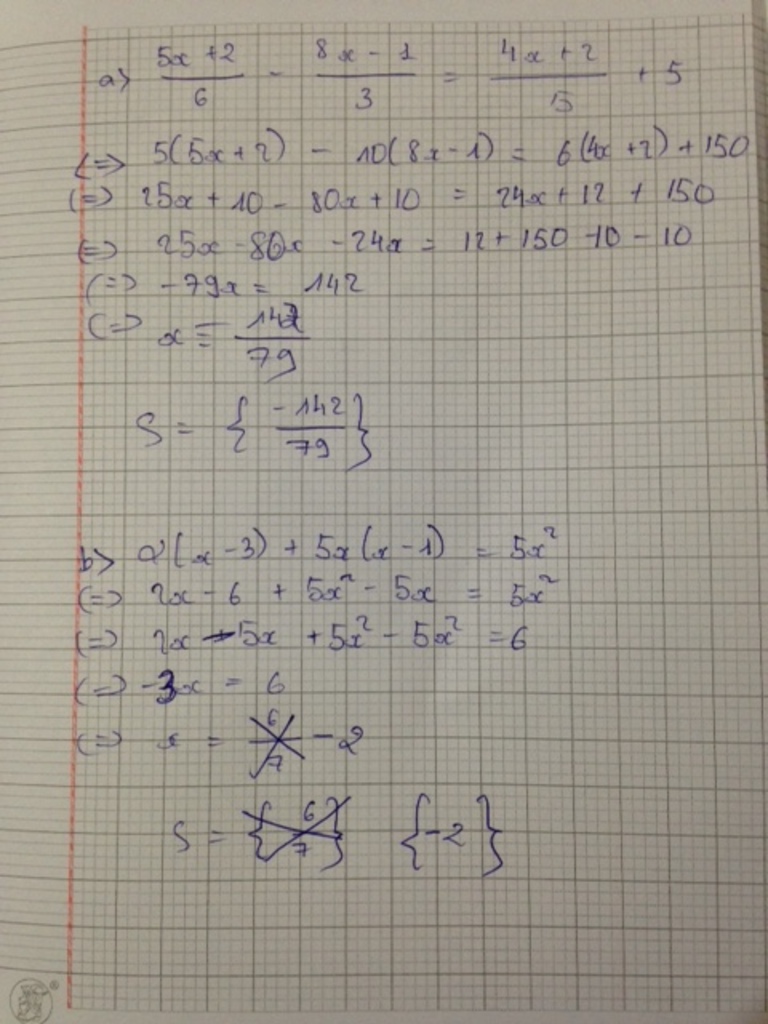 a) (5x + 2)/6 - (8x - 1)/3 = (4x + 2)/5 + 5
<=> 5(5x + 2) - 10(8x - 1) = 6(4x + 2) + 150
<=> 25x + 10 - 80x + 10 = 24x + 12 + 150
<=> 25x - 80x - 24x = 12 + 150 - 10 - 10
<=> -79x = 142
<=> x = -142/79
S = { -142/79 }
b) 2(x - 3) + 5x(x - 1) = 5x²
<=> 2x - 6 + 5x² - 5x = 5x²
<=> 2x - 5x + 5x² - 5x² = 6
<=> -3x = 6
<=> x = 6/7 - 2
S = { 6/7 } {-2}